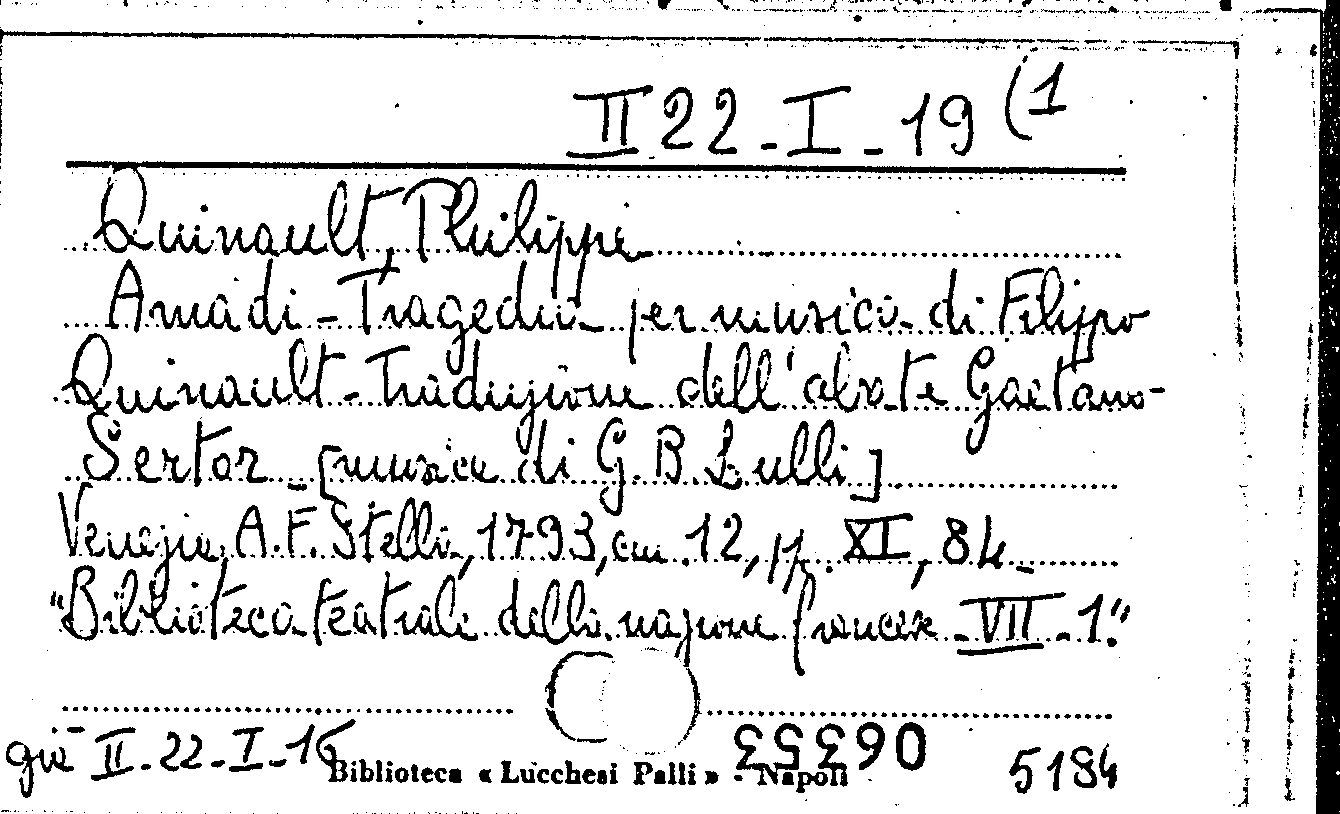 II 22 - I - 19 (1
Quinault, Philippe
Amadi - Tragedia per musica di Filippo
Quinault - Traduzione dell'abate Gaetano
Sertor - [musica di G. B. Lulli]
Venezia, A. F. Stella, 1793, cm. 12, pp. XI, 84 -
"Biblioteca teatrale della nazione francese - VII - 1."
già II - 22 - I - 16
Biblioteca « Lucchesi Palli » - Napoli
063353
5184